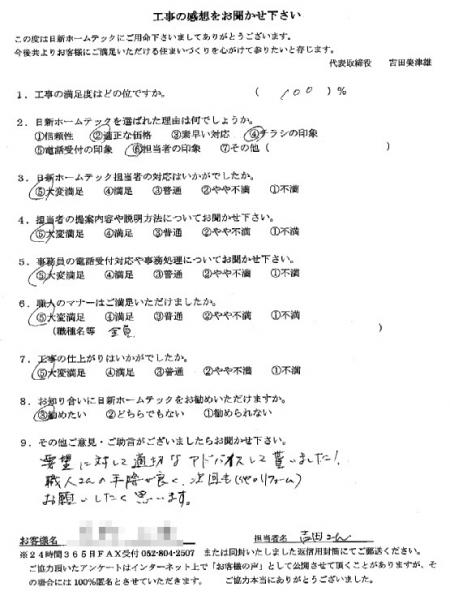 工事の感想をお聞かせ下さい
この度は日新ホームテックにご用命下さいましてありがとうございます。
今後共よりお客様にご満足いただける住まいづくりを心がけて参りたいと存じます。
代表取締役 吉田美津雄
1．工事の満足度はどの位ですか。 （ 100 ）％
2．日新ホームテックを選ばれた理由は何でしょうか。
①信頼性 ②適正な価格 ③素早い対応 ④チラシの印象
⑤電話受付の印象 ⑥担当者の印象 ⑦その他（ ）
3．日新ホームテック担当者の対応はいかがでしたか。
⑤大変満足 ④満足 ③普通 ②やや不満 ①不満
4．担当者の提案内容や説明方法についてお聞かせ下さい。
⑤大変満足 ④満足 ③普通 ②やや不満 ①不満
5．事務員の電話受付対応や事務処理についてお聞かせ下さい。
⑤大変満足 ④満足 ③普通 ②やや不満 ①不満
6．職人のマナーはご満足いただけましたか。
⑤大変満足 ④満足 ③普通 ②やや不満 ①不満
（職種名等 全員 ）
7．工事の仕上がりはいかがでしたか。
⑤大変満足 ④満足 ③普通 ②やや不満 ①不満
8．お知り合いに日新ホームテックをお勧めいただけますか。
③勧めたい ②どちらでもない ①勧められない
9．その他ご意見・ご助言がございましたらお聞かせ下さい。
要望に対して適切なアドバイスして貰いました！
職人さんの手際が良く、次回も(他のリフォーム)
お願いしたく思います。
お客様名 担当者名 吉田さん
※24時間365日FAX受付 052-804-2507 または同封いたしました返信用封筒にてご郵送ください。
ご協力頂いたアンケートはインターネット上で「お客様の声」として公開させて頂くことがありますが、そ
の場合には100%匿名とさせていただきます。 ご協力本当にありがとうございました。